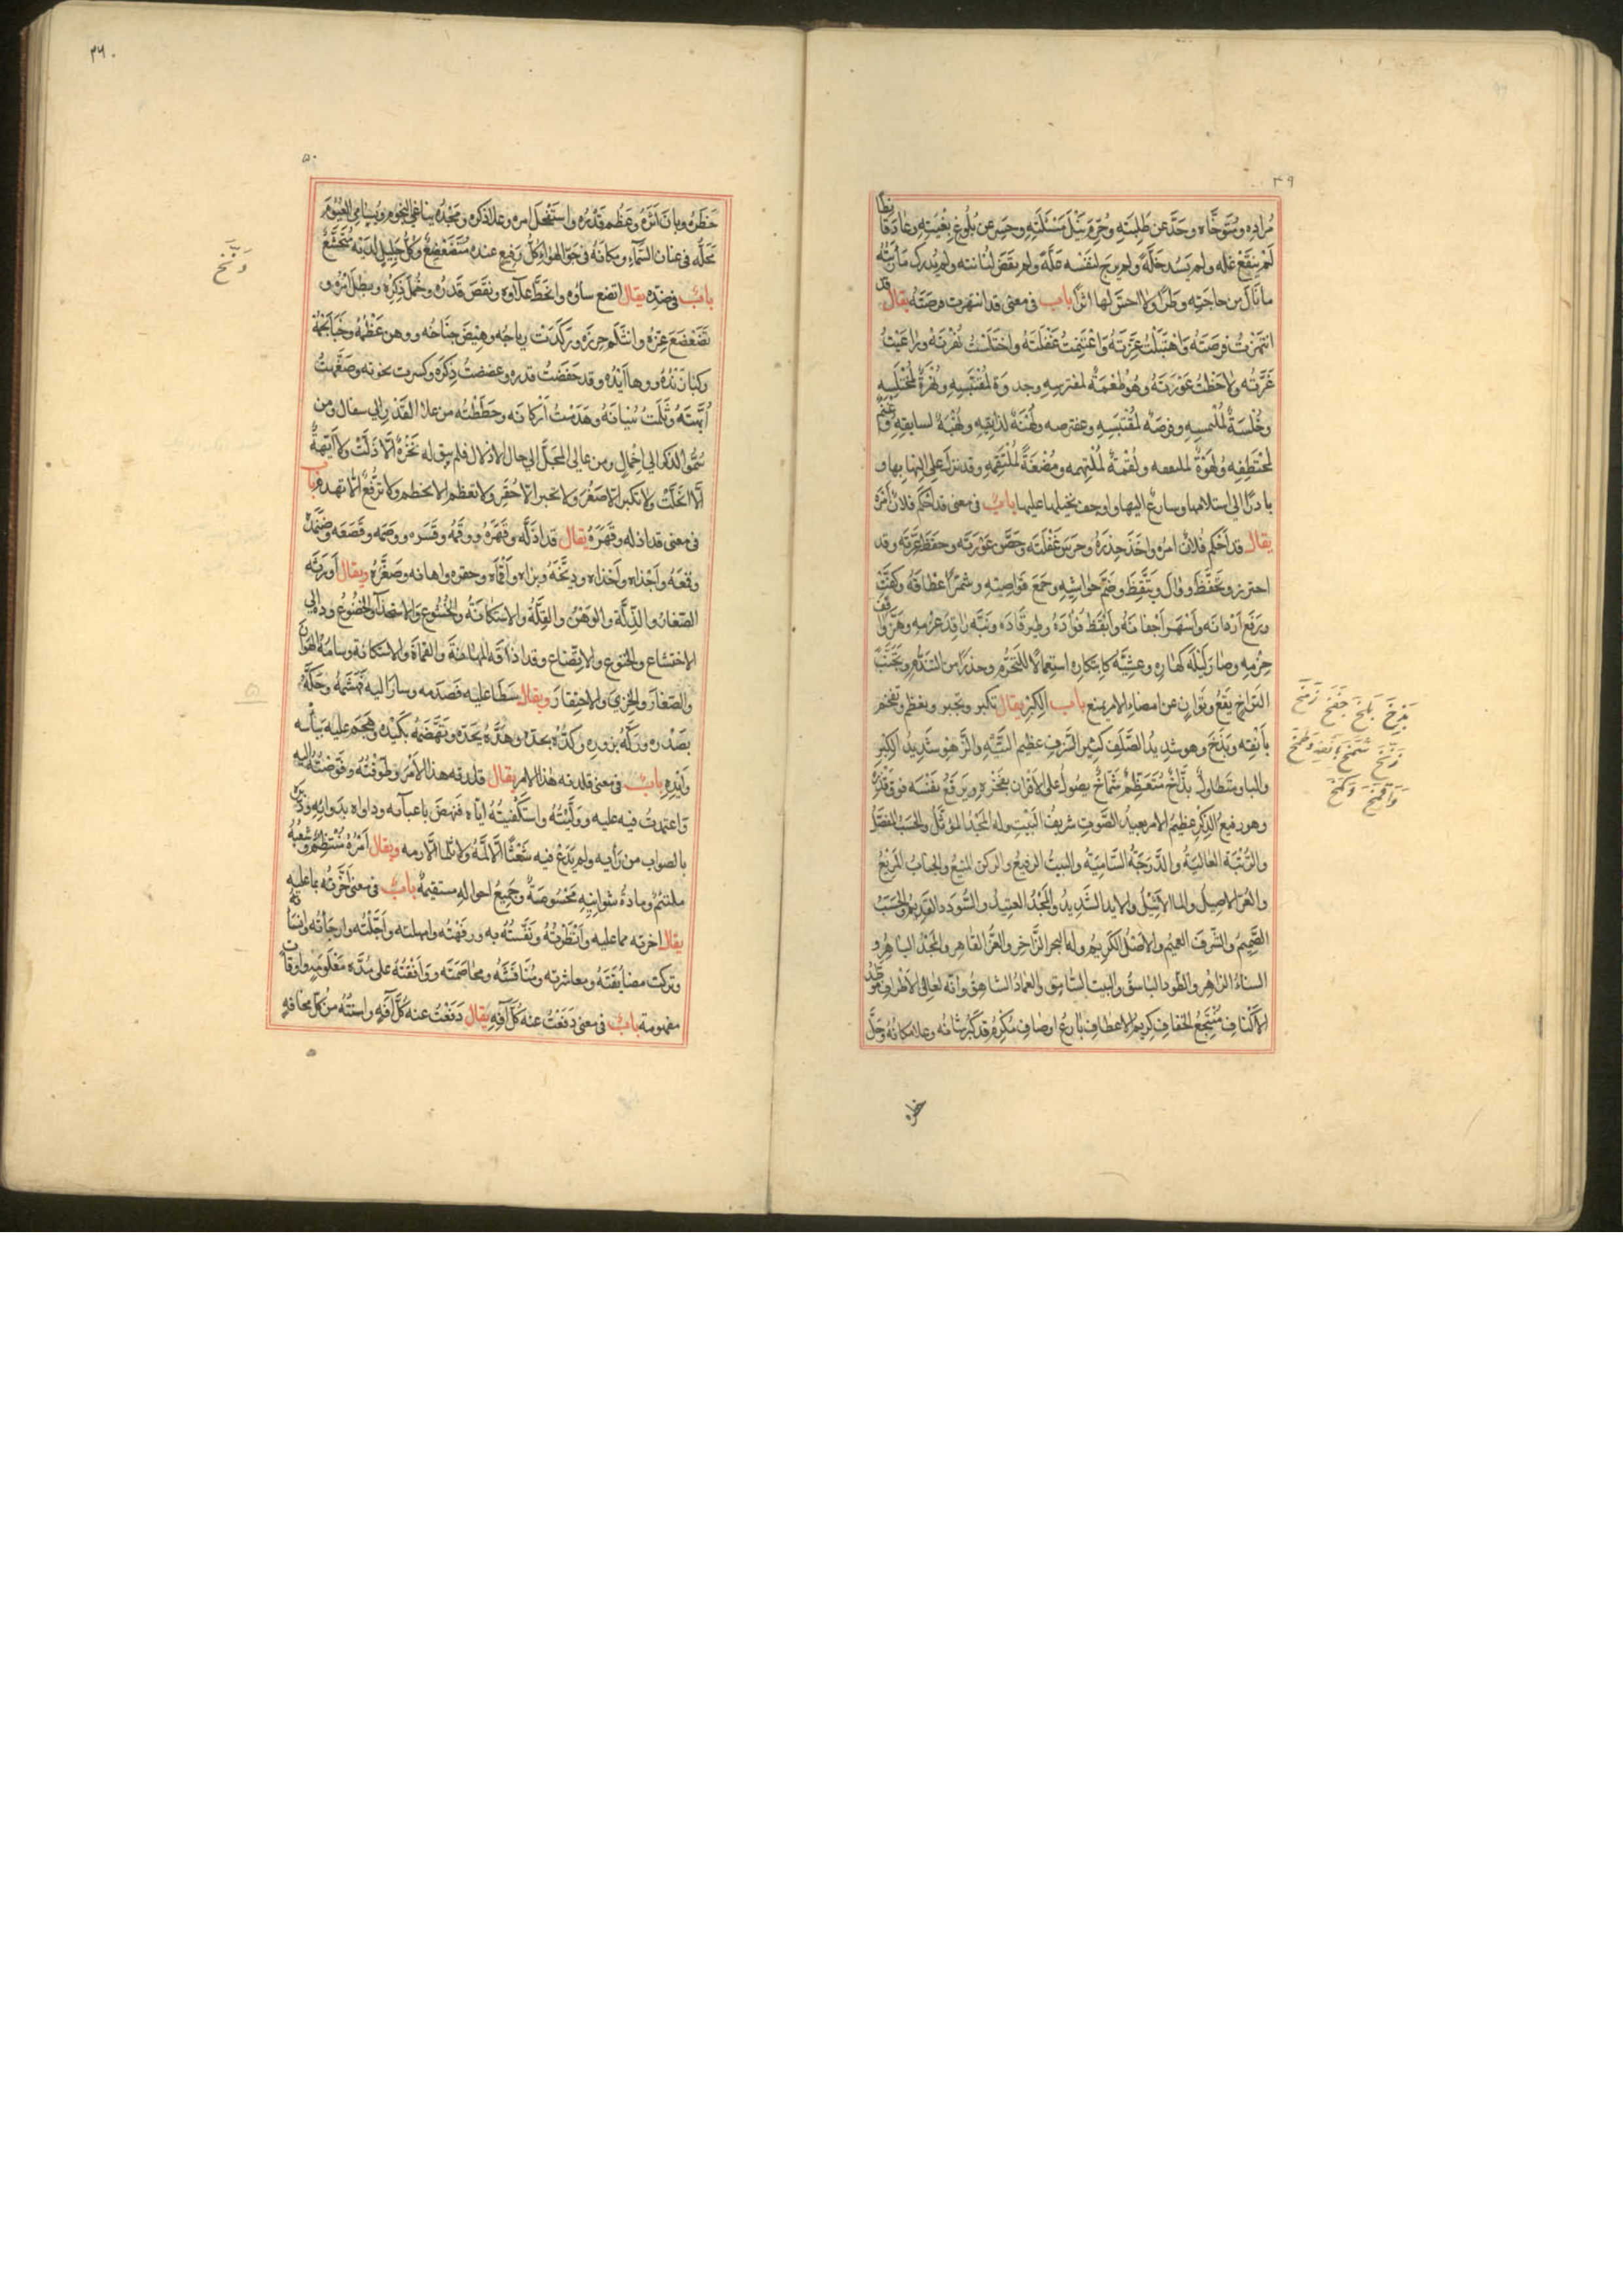 ٣٩
مُرادِه ومُتَوخَّاه وحَدَّ عن طَلِبَتِهِ وحُرِّمَ نَيْلَ مَسْئَلَتِهِ وحسر عن بُلُوغِ بِغْيَتِهِ وعاد قانِطًا
لَمْ يَنْقَعْ غلَّه ولم يَسُد خَلَّةً ولم يرج لنفسه علَّةً ولم يقض لُبانته ولم يُدرك مَأرَبَتُه
ما نال من حاجَتِهِ وطَرًا ولا احسّ لها اثرًا باب في معنى قد انتهزت فرصَتَه يقال قد
انتهزتُ فرصَتَه وَاهْتَبَلْتُ غِرَّتَهُ وَاغْتَنَمْتُ غَفْلَتَهُ واختَلَسْتُ نُهْزَتَهُ وراعَيْتُ
غَرَّتُه ولاحَظْتُ عَوْرَتَهُ وهُوَ طُعْمَةٌ لمفترسِهِ وجدوَة لمُقتَبِسِهِ ونُهْزَةٌ لمُخْتَلِسِهِ
وخُلسَةٌ لملتمسِهِ وفرصَةٌ لمُقْتَبَسِهِ ومفترصه ولُهْنَةٌ لذائِقِهِ ونُهْبَةٌ لسابقِهِ وغُنْمٌ
لمُخْتَطِفِه ولُهْوَةٌ ولُقْمَةٌ لمُلْتهِمه ومُضْغَةٌ لمُلْتَقِمِهِ وقد نزل على التهابها و
بادر الى استلامها وسارع اليها واوجف بخيلها عليها باب في معنى قد احْكَم فلان اَمْرَه
يقال قد احْكَم فلانٌ امرَه واخَذَ حِذرَهُ وحرسَ غَفْلَتَه وحَصَّن عَوْرَتَه وحَفَظَ غِرَّتَه وقد
احترز وتحفَّظَ وتيَقَّظَ وضَمَّ حواشِيه وجَمَعَ قواصِيَهِ وشمَّر اعطافَه وكَفَّتَ
ورَفَعَ اَرْدانَه واَسْهَر اَجفانَهُ واَيْقَظَ فُؤادَهُ وطير رُقادَه ونَبَّه راقدَ عزمِه وهَزَّ واقِفَ
حزمِهِ وصار لَيلَه كنهارِهِ وعشِيَّه كابتكارِه استعمالًا للتحرُّمِ وحذرًا من التندُّمِ وتجنُّبَ
التراخي يقع وتوانٍ عن امضاء الامر يمنع باب الكِبْرِ يقال تكبر وتجبر وتعظم وتفخم
بأنفِه وبَذَخَ وهو شديدُ الصَّلَفِ كثيرُ السَّرَفِ عظيم التِّيْهِ والزَّهْو شَدِيدُ الكِبْرِ
والباو متطاولٌ بذَّاخٌ مُتَعَظِّمٌ شمّاخٌ يصولُ على الاَقران بفخْرِه ويرَفَعُ نفسَه فوق قَدْرِه
وهو رفيعُ الذِّكْرِ عظيمُ الامر بعيدُ الصَّوتِ شريفُ البَيْتِ وله المَجْدُ المؤثَّلُ والحَسَبُ المفضَّلُ
والرُّتْبَة العاليَةُ والدَّرَجَةُ السَّامِيَةُ والبيتُ الرفيعُ والركن المنيعُ والجنابُ المَرِيْعُ
والعزّ الاصِيلُ والمال الاَثِيْلُ والايد الشَّدِيدُ والمجْدُ العتيدُ والسُّودَد القديمُ والحَسَبُ
الصَّمِيمُ والشَّرف العميمُ والاَصْلُ الكَرِيْمُ وله البحر الزَّاخِر والعزُّ القاهر والمَجْدُ الباهِرُ و
السناءُ الزاهِرُ والطَّود الباسقُ والبيت السَّامق والعِمادُ الشاهقُ وانّه لعالى الاَطرافِ موطَّدُ
الاَكْنافِ مُنْتَجَعُ كريمُ الاعطافِ بارعُ اوصافِ مُكَرَّمٌ قد كَبُرَ شانُه وعلا مكانُهُ وجَلَّ
خطره
بَذَخَ بَلَخَ جَفَخَ زَمَخَ
زَنَخَ شَمَخَ بِاَنْفِهِ
٣٦٠
٥٠
خَطَرُه وبان اَثَرُه وعَظُم قَدْرُه واستَفْحَل امره وعلا ذكره ومَجْدُه يناغي النجوم ويسامي الغيُومَ
مَحَلُّه في عنان السَّمآءِ ومكانَهُ في جَوّ الهواءِ كلُّ رفيعٍ عنده مُتَضَعْضِعٌ وكلُّ جليلٍ لديْه مُتَخَشِّعٌ
بابٌ في ضدِّه يقال اتضع سناؤه وانحطَّ علاؤه ونقصَ قَدْرُه وخَمُل ذِكرُه وبطل اثرُه و
تَضَعْضَعَ عِزُّه وانثلَم حرزُه ورَكَدَتْ رِياحُه وهِيْضَ جَناحُه ووهن عَظْمُهُ وخَبا نَجْمُهُ
وكبا زنْدُه ووها اَيْدُه وقد خفَضتُ قدره وغضضتُ ذِكرَه وكسرت نخوته وصَغَّرتُ
اُبَّهتَه وثَلَمتُ بُنيانَهُ وهَدَمْتُ اَرْكانَه وحطَطْتُه من علاء القَدْرِ الى سفال ومن
سُمُوّ الذكر الى اخمالٍ ومن عالى المحلّ الى حال الاذلال فلم يبق له نخوةٌ الّا ذَلَّتْ ولا اُبَّهةٌ
الّا انحَلَّتْ ولا تكبر الّا صَغُرَ ولا تجبر الّا حُقِرَ ولا تعظم الا تحطم ولا ترفُّعٌ الّا تهدم باب
في معنى قد اذله وقهرَه يقال قد اَذَلَّه وقهَرَهُ ووقَمَهُ وقَسَره ووصَمه وقصَعه
وقمَعَهُ واَخَذاه ودَيَّخَهُ وبزاه واَقْماه وحقره واهانه وصَغَّرَهُ ويقال اَورَثَه
الصّغارَ والذِّلَّةَ والوَهْنَ والقِلَّةَ والاستكانَةَ والخُشُوعَ والاستخذآء والخضُوعَ ودعا الى
الاختشاع والخنوع والاتِّضاع وقد اذاقه المهانةَ والقماةَ والاستكانة وسامَهُ الهَوانَ
والصّغارَ والخِزيَ والاحتِقارَ ويقال سَطا عليه فصَدَمه وسار اليه فهَشَمَهُ
بصَدْرِه وركَّهُ بزورِهِ وكدَّه بحدّه وهَدَّهُ بجَدّه وتهَضَّمَهُ بكيدِه وهَجَم عليه ببأسه
واَيْدِهِ بابٌ في معنى قلدته هذا الامر يقال قلّدته هذا الاَمْرَ وطَوَّقْتُه وفَوَّضتُهُ اليه
وَاعتمدتُ فيه عليه ووَلَّيْتُهُ واستكْفَيتُهُ ايّاه فنهضَ باعبآئه وداواه بدوائِهِ ودبَّرَ
بالصواب من رَأيه ولم يَدَعْ فيه شَعَثًا الّا لمَّهُ ولا ثلما الّا رمه ويقال اَمْرُهُ مُنْتظِمٌ وشَعْبُهُ
ملتئمٌ ومادَّةُ شوائبِهِ مَحْسُومَةٌ وجميعُ احوالهِ مستقيمةٌ بابٌ في معنى اَخَّرتُه بما عليه
يقال اخرته مما عليه واَنْظَرتُهُ ونَفَّسْتُهُ به ورفَّهْتُه وامهلته واَجَّلْتُه وارجَأتُه وانسَأتُهُ
وتركت مضايَقَتَهُ ومعاشرته ومُناقَشَتَه ومخاصَمَتَه ووَافَقْتُهُ على مُدَّة مَعْلومَةٍ واوقاتٍ
مفهومة بابٌ في معنى دَفَعْتُ عنه كلَّ آفةٍ يقال دَفَعْتُ عنه كلَّ آفَةٍ وامَنْتُه من كلّ مخافةٍ